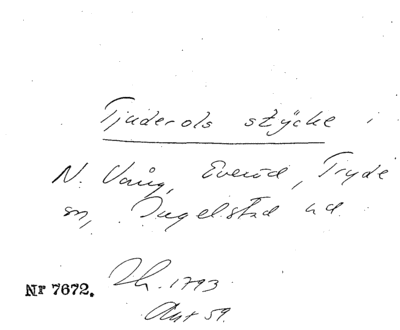 Tjuderols stycke i
N. Vång, Everöd, Tryde
sn, Ingelstad hd.
Nr 7672. Lh. 1793
Akt 59.